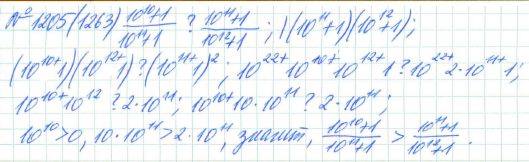 № 1205(1263) (10¹⁰+1)/(10¹¹+1) ? (10¹¹+1)/(10¹²+1); )(10¹¹+1)(10¹²+1);
(10¹⁰+1)(10¹²+1)?(10¹¹+1)²; 10²²+10¹⁰+10¹²+1?10²²+2·10¹¹+1;
10¹⁰+10¹² ? 2·10¹¹; 10¹⁰+10·10¹¹ ? 2·10¹¹;
10¹⁰>0, 10·10¹¹>2·10¹¹, значит, (10¹⁰+1)/(10¹¹+1) > (10¹¹+1)/(10¹²+1).